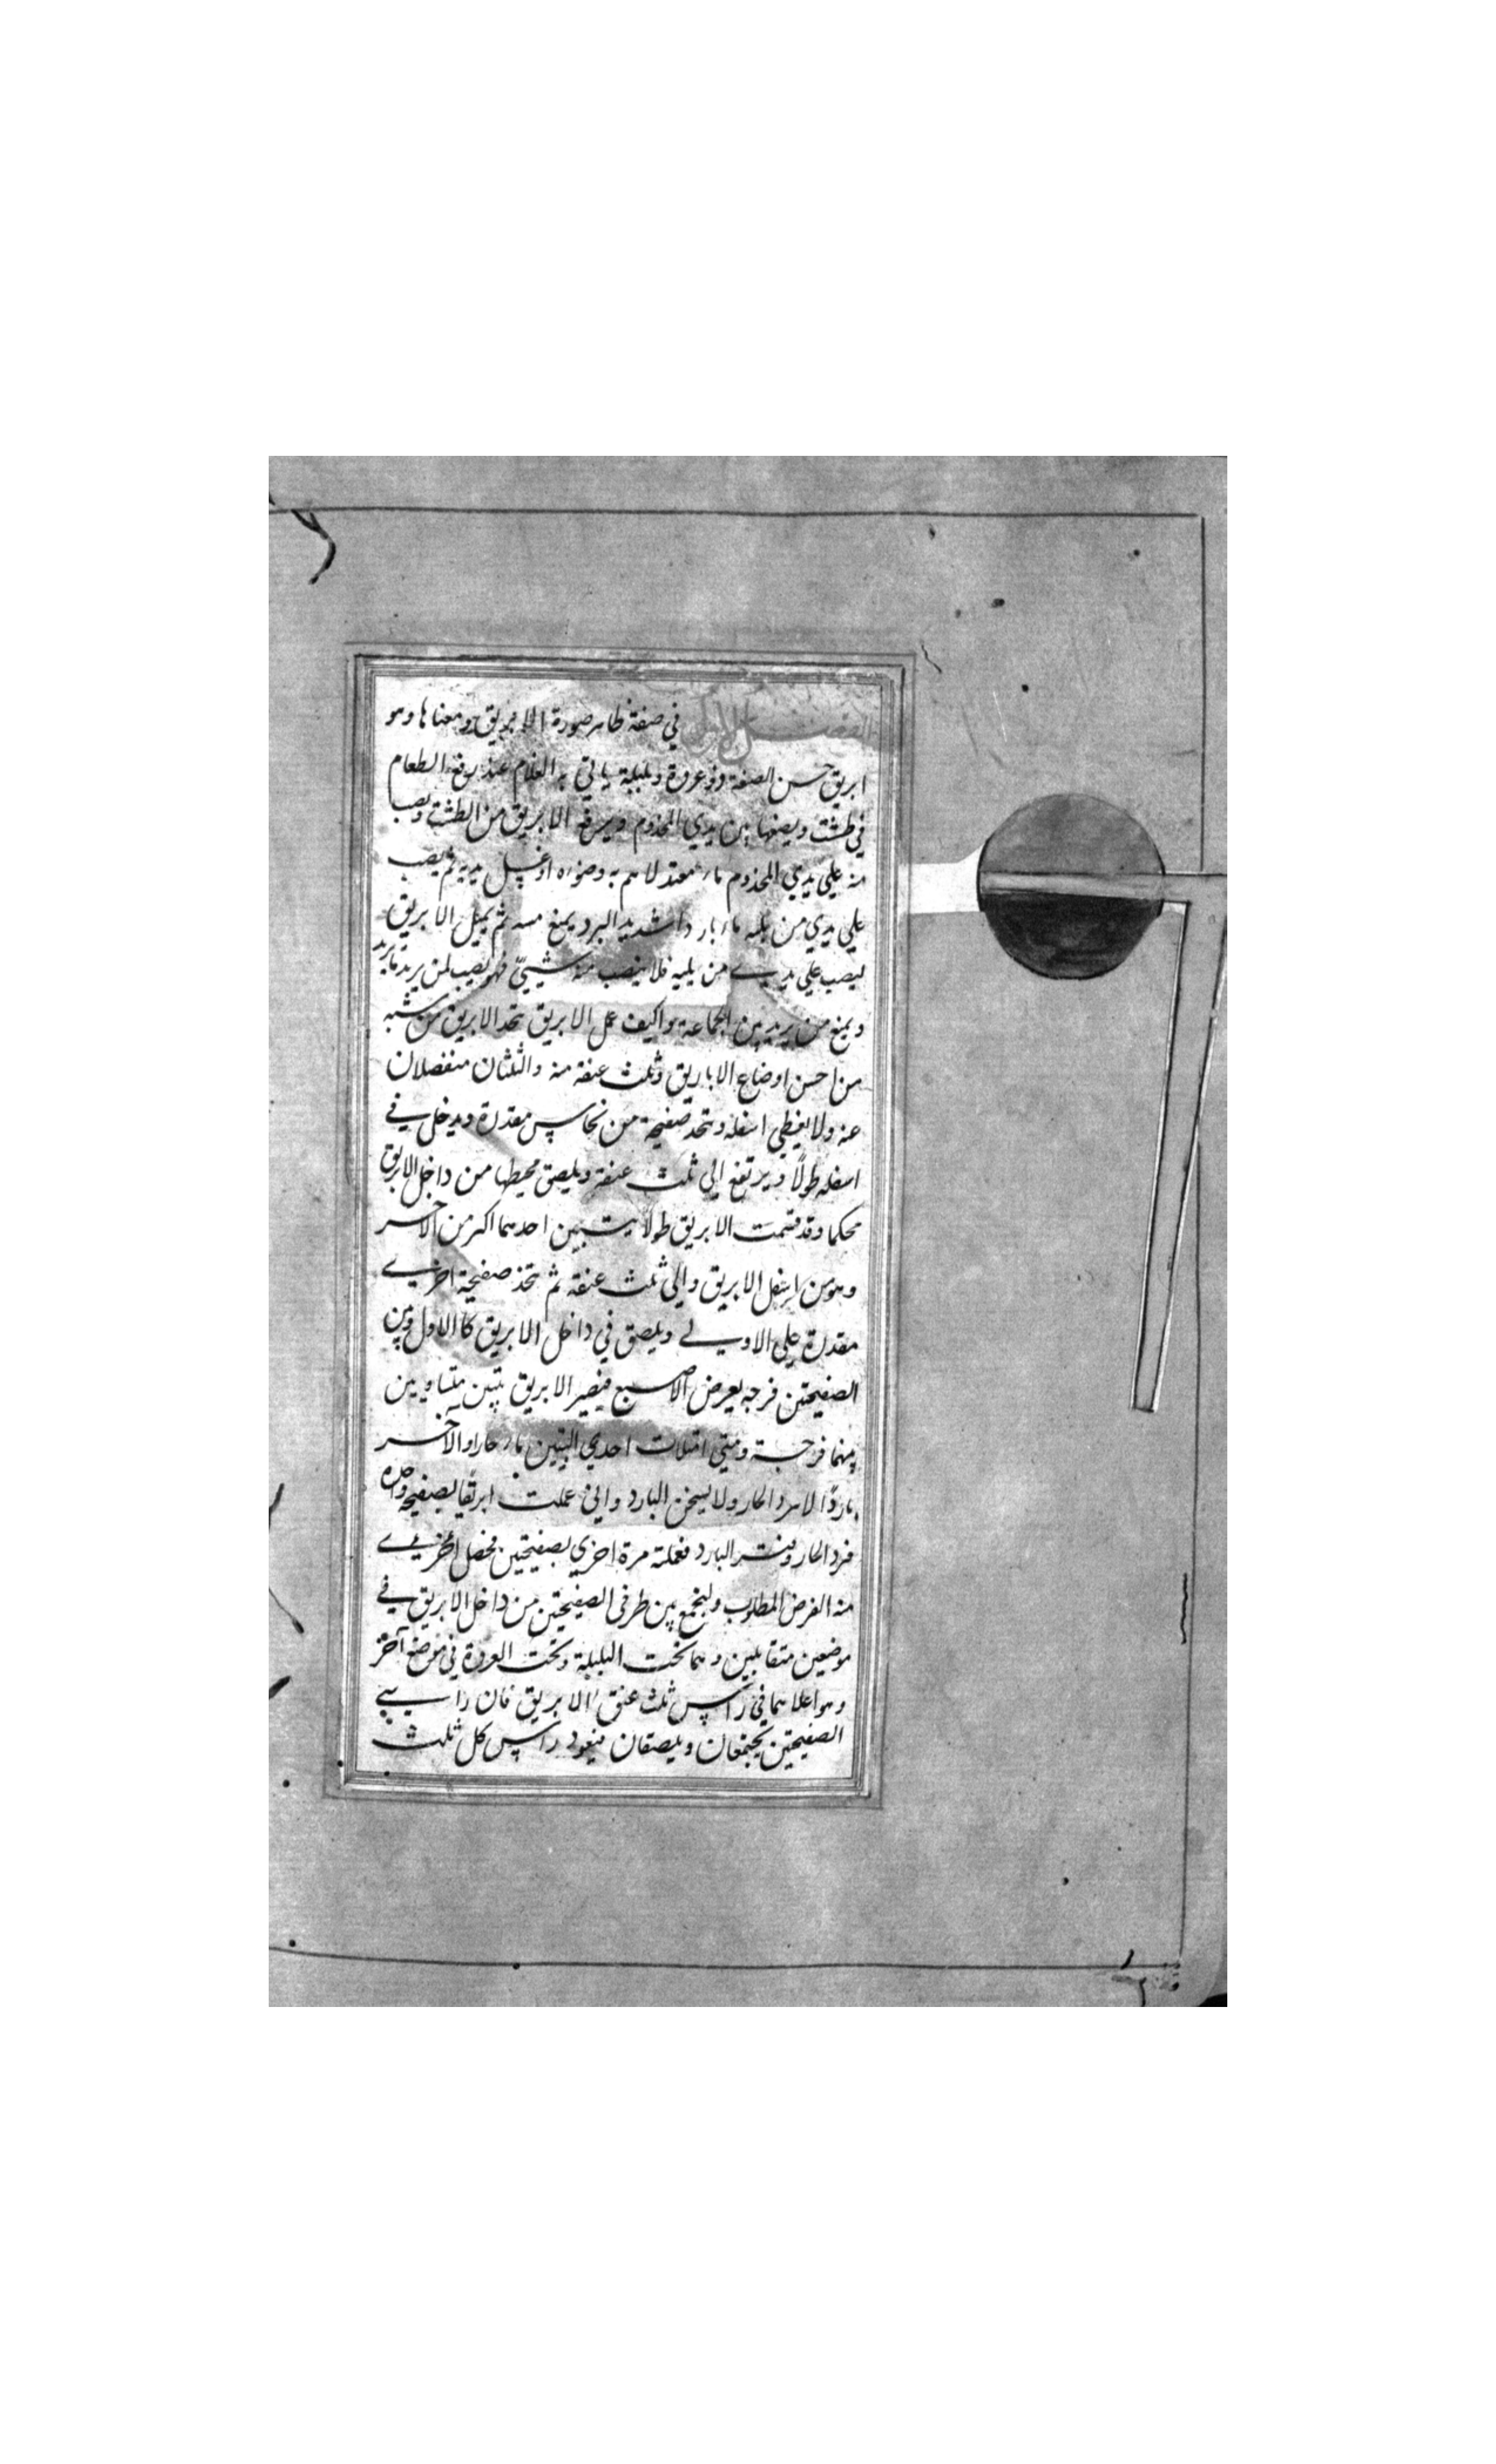 الفصل الاول في صفة ظاهر صورة الابريق ومعناها وهو
ابريق حسن الصفة وذو عروة وبلبلة ياتي به الغلام عند رفع الطعام
في طشت ويضعها بين يدي المخدوم ويرفع الابريق من الطشت ويصب
منه علي يدي المخدوم ماء معتدلا هم به وضوءه او غسل يديه ثم يصب
علي يدي من يليه ماء باردا شديد البرد يمنع مسه ثم يميل الابريق
ليصب علي يدي من يليه فلا ينصب منه شيئ فهو يصب لمن يريد ما يريد
ويمنع من يريد من الجماعة واكيف عمل الابريق تتخد الابريق من شبه
من احسن اوضاع الاباريق وثلث عنقة منه والثلثان منفصلان
عنه ولا يغطي اسفله وتتخد صفيحة من نحاس مقدرة ويدخل في
اسفله طولا ويرتفع الي ثلث عنقة ويلصق محيطها من داخل الابريق
محكما وقد قسمت الابريق طولا بيتين احدهما اكبر من الاخر
وهو من اسفل الابريق والي ثلث عنقة ثم تتخذ صفيحة اخري
مقدرة علي الاولي ويلصق في داخل الابريق كالاول وبين
الصفيحتين فرجه بعرض الاصبع فيصير الابريق بيتين متساويين
بينهما فرجة ومتي امتلات احدي البيتين ماء حارا والآخر
باردًا لا يبرد الحار ولا يسخن البارد واني عملت ابريقًا بصفيحة واحدة
فبرد الحار وفتر البارد فعملته مرة اخري بصفيحتين فحصل الغرض
منه الغرض المطلوب وليجمع بين طرفي الصفيحتين من داخل الابريق في
موضعين متقابلين وهما تحت البلبلة وتحت العروة في موضع آخر
وهو اعلاهما في راس ثلث عنق الابريق فان راسي
الصفيحتين يجتمعان ويلصقان فيعود راس كل ثلث